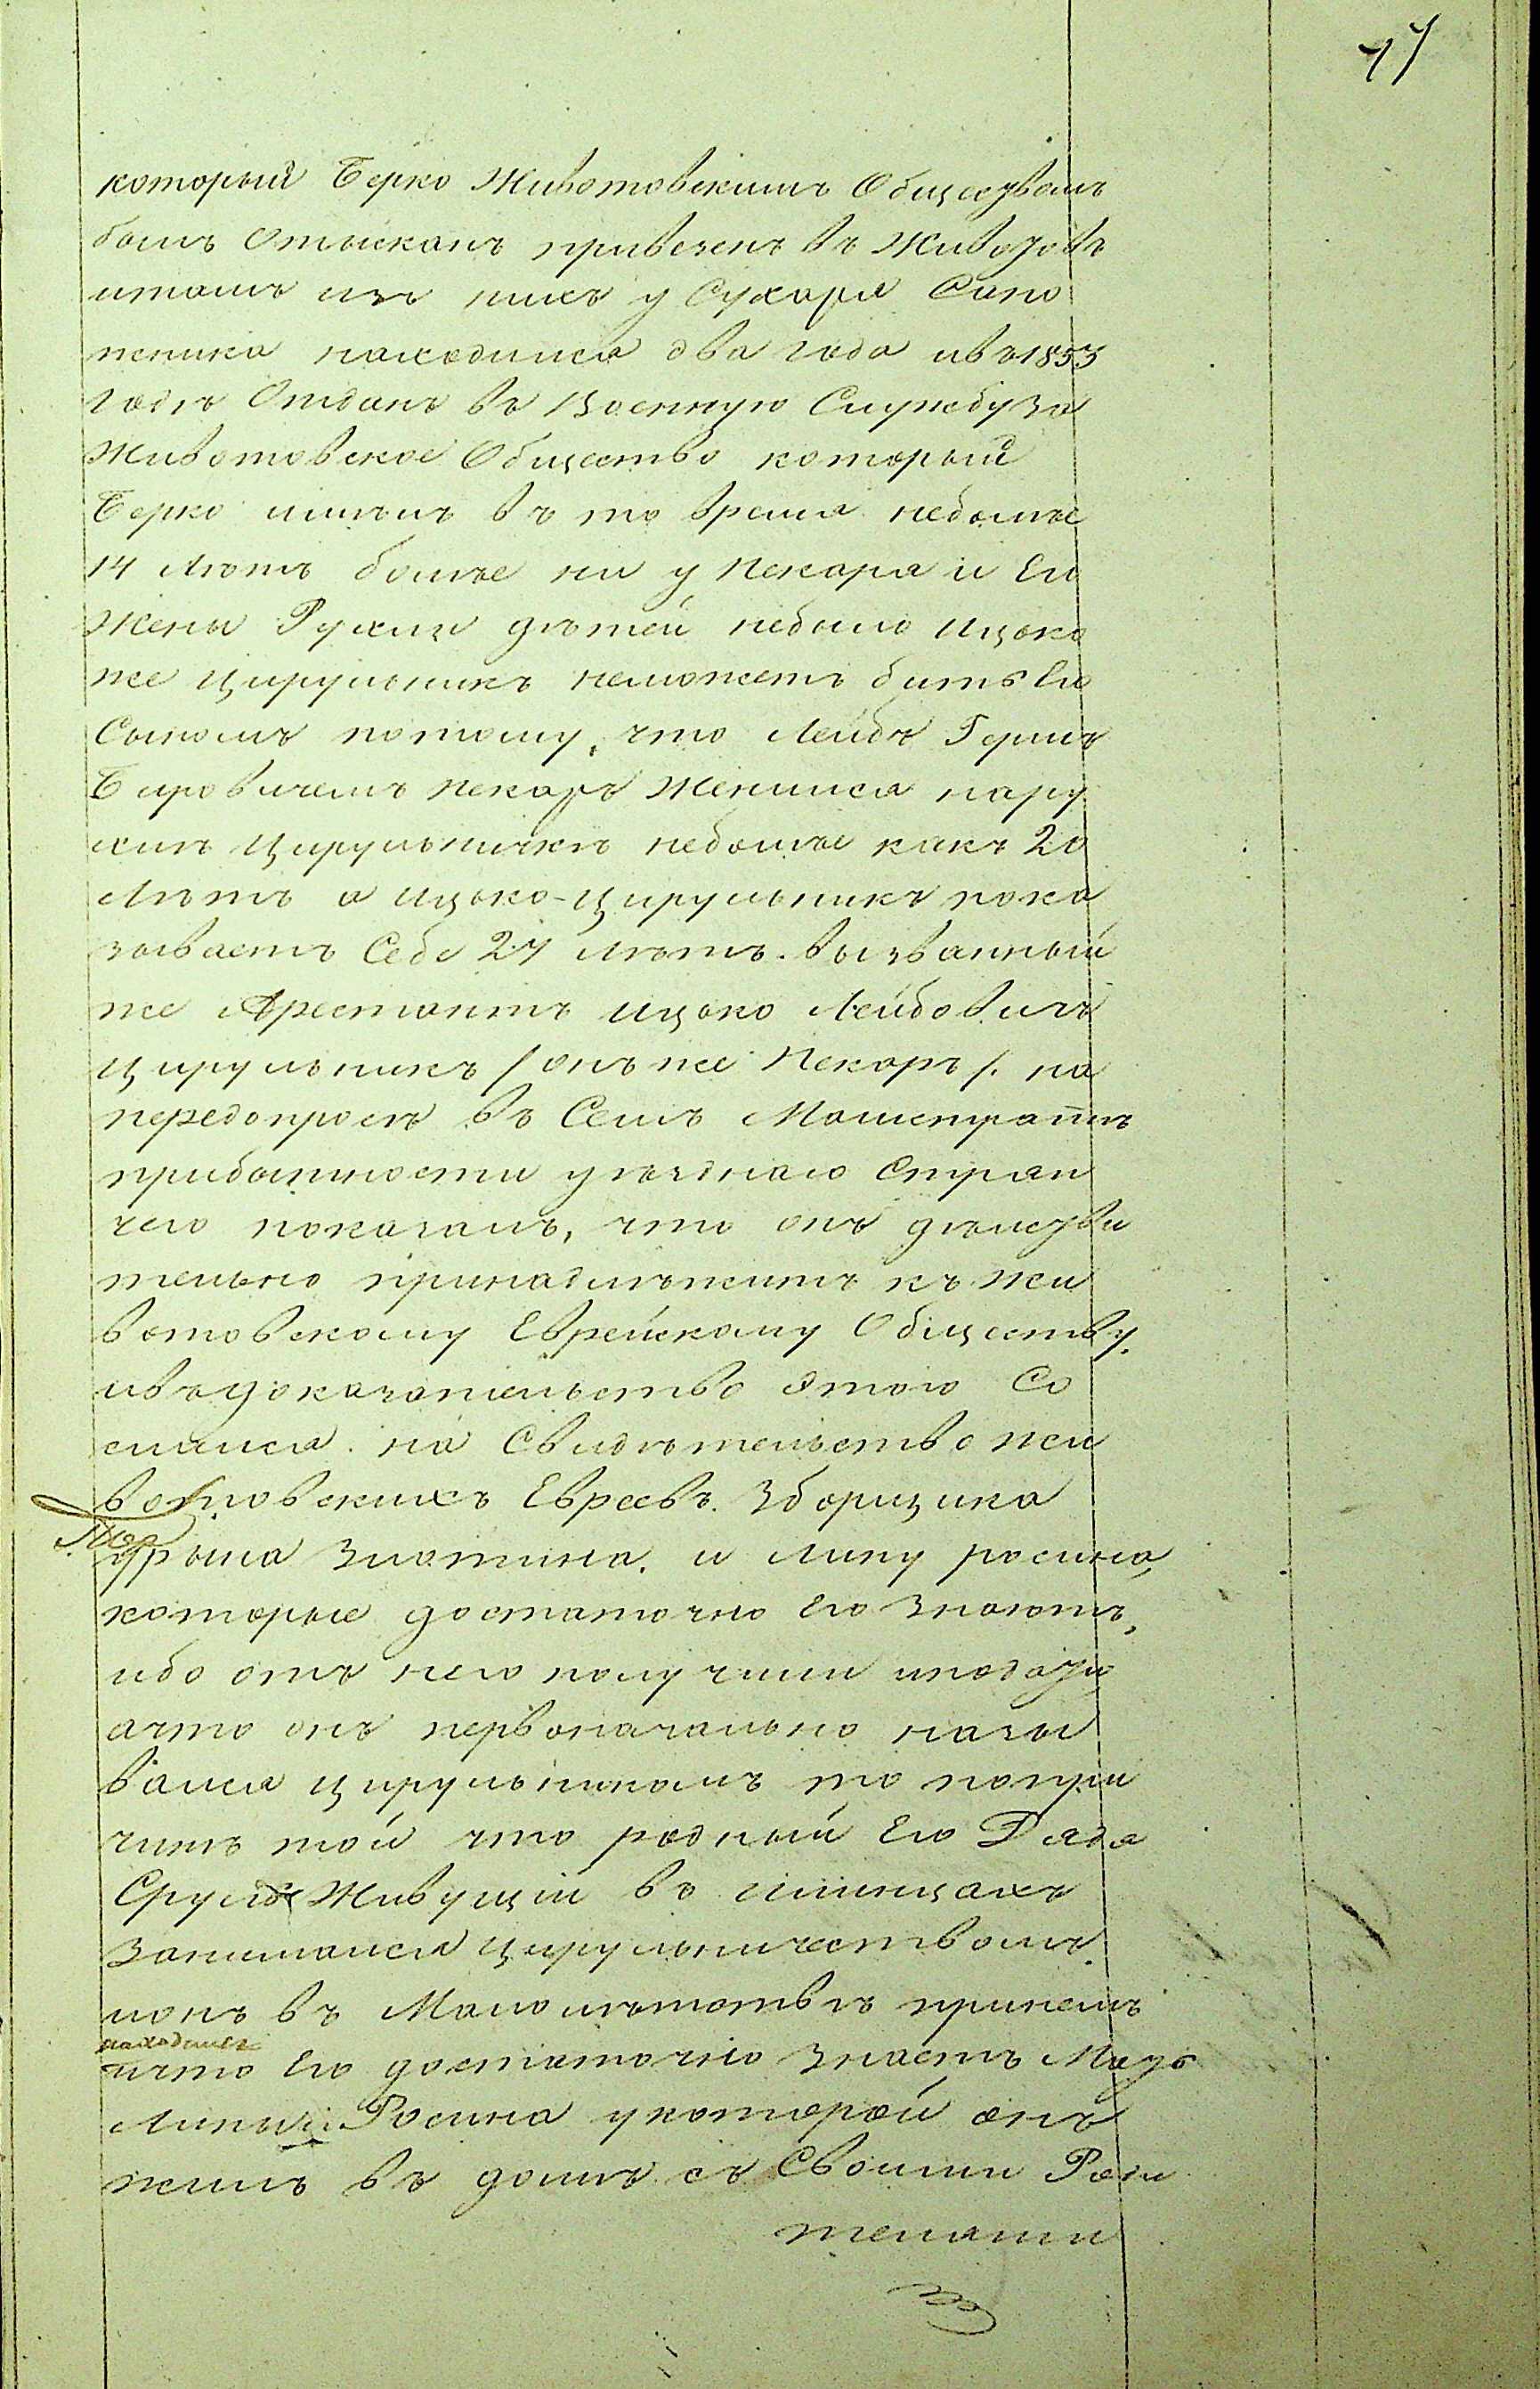 47
который Берко Животовскимъ Обществомъ
былъ Отысканъ привезенъ въ Животовъ
итамъ изъ нихъ у Сухаря Сапо
жника находился два года ивъ 1853
годѣ Отданъ въ Военную Службу за
Животовское Общество который
Берко имѣлъ въ то время неболѣе
14 лѣтъ болѣе ни у Пекаря и Его
Жены Рухли дѣтей небыло Ицько
же Цирульникъ неможетъ быть Его
Сыномъ потому, что Лейбъ Герш
Беровичемъ Пекарь Женился нару
хлѣ Цирульничкѣ неболѣе какъ 20
Лѣтъ а Ицько-Цирульникъ пока
зываетъ Себе 27 лѣтъ. вызванный
же Арестантъ Ицько Лейбовичъ
Цирульникъ /онъ же Пекарь/. на
передопросѣ въ Семъ Магистратѣ
прибытности уѣзднаго Стряп
чего показалъ, что онъ дѣйстви
тельно принадлѣжитъ къ Жи
вотовскому Еврейскому Обществу,
ивъ доказательство этого Со
слался на Свидѣтельство жи
вотовскихъ Евреевъ. Зборщика
Срыла Злотина. и Липу росина,
которые достаточно Его Знаютъ,
ибо отъ него получили иподати
ачто онъ первоначально назы
вался цирульникомъ то попри
чинѣ той что родный Его Дядя
Сруль Живущій въ
Занимался цирульничествомъ
ионъ въ Малолѣтствѣ принемъ
находился
ичто Его достаточно Знаетъ Мать
Липы Росина укоторой онъ
жилъ въ домѣ съ Своими Роди
телями